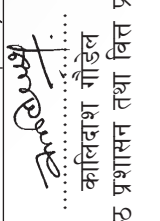 कालिदाश गौडेल
ठ प्रशासन तथा वित्त प्र